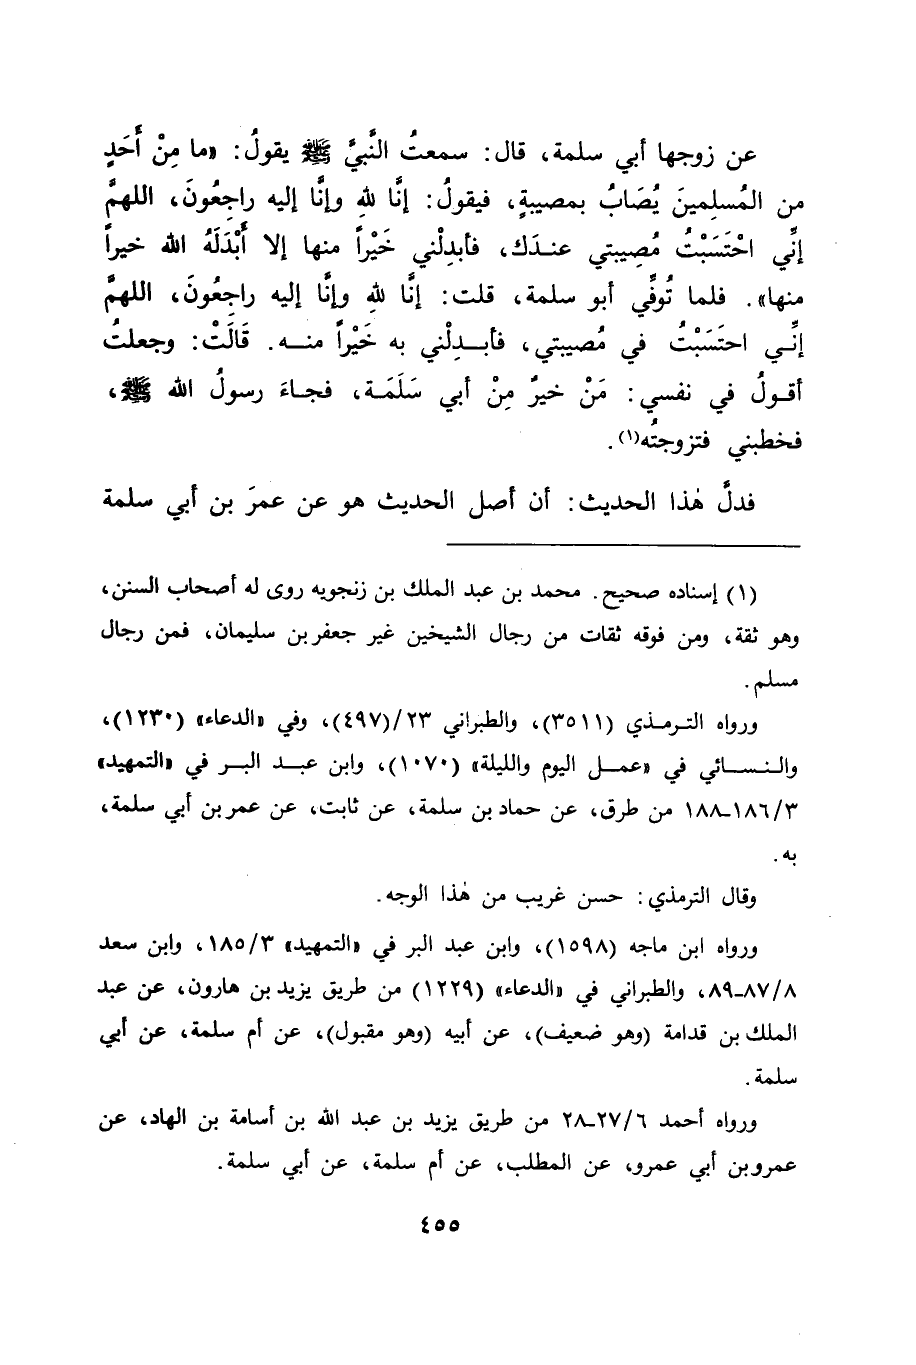 عن زوجها أبي سلمة، قال: سمعتُ النَّبيَّ ﷺ يقولُ: «ما مِنْ أَحَدٍ
من المُسلمينَ يُصَابُ بمصيبةٍ، فيقولُ: إنَّا للهِ وإنَّا إليه راجِعُونَ، اللهمَّ
إنِّي احْتَسَبْتُ مُصِيبتي عنـدَك، فأبدِلْني خَيْراً منها إلا أَبْدَلَهُ الله خيراً
منها». فلما تُوفِّي أبو سلمة، قلت: إنَّا للهِ وإنَّا إليه راجِعُونَ، اللهمَّ
إنِّـي احتَسَبْتُ في مُصيبتي، فأبـدِلْني به خَيْراً منـه. قَالَتْ: وجعلتُ
أقـولُ في نفسي: مَنْ خيرٌ مِنْ أبي سَلَمَـة، فجـاءَ رسولُ الله ﷺ،
فخطبني فتزوجتُه(١).
فدلَّ هٰذا الحديث: أن أصل الحديث هو عن عمرَ بن أبي سلمة
(١) إسناده صحيح. محمد بن عبد الملك بن زنجويه روى له أصحاب السنن،
وهو ثقة، ومن فوقه ثقات من رجال الشيخين غير جعفر بن سليمان، فمن رجال
مسلم.
ورواه التـرمـذي (٣٥١١)، والطبراني ٢٣/(٤٩٧)، وفي «الدعاء» (١٢٣٠)،
والنسـائي في «عمـل اليوم والليلة» (١٠٧٠)، وابن عبـد البـر في «التمهيد»
٣/١٨٦-١٨٨ من طرق، عن حماد بن سلمة، عن ثابت، عن عمر بن أبي سلمة،
به.
وقال الترمذي: حسن غريب من هٰذا الوجه.
ورواه ابن ماجه (١٥٩٨)، وابن عبد البر في «التمهيد» ٣/١٨٥، وابن سعد
٨/٨٧-٨٩، والطبراني في «الدعاء» (١٢٢٩) من طريق يزيد بن هارون، عن عبد
الملك بن قدامة (وهو ضعيف)، عن أبيه (وهو مقبول)، عن أم سلمة، عن أبي
سلمة.
ورواه أحمد ٦/٢٧-٢٨ من طريق يزيد بن عبد الله بن أسامة بن الهاد، عن
عمرو بن أبي عمرو، عن المطلب، عن أم سلمة، عن أبي سلمة.
٤٥٥